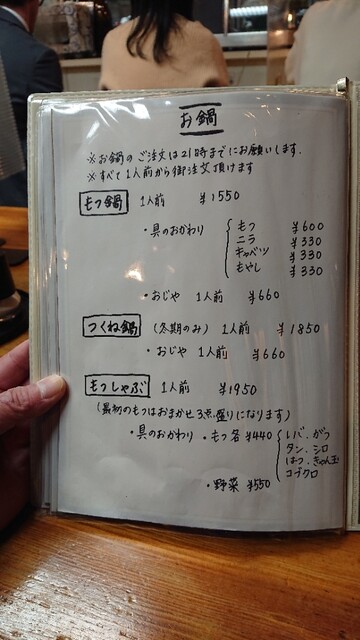 お鍋
※お鍋のご注文は21時までにお願いします.
※すべて1人前から御注文頂けます
もつ鍋 1人前 ¥1550
・具のおかわり もつ ¥600
ニラ ¥330
キャベツ ¥330
もやし ¥330
・おじや 1人前 ¥660
つくね鍋 (冬期のみ) 1人前 ¥1850
・おじや 1人前 ¥660
もつしゃぶ 1人前 ¥1950
(最初のもつはおまかせ3点盛りになります)
・具のおかわり ・もつ各 ¥440 レバ、がつ
タン、シロ
はつ、きゃん玉
コブクロ
・野菜 ¥550